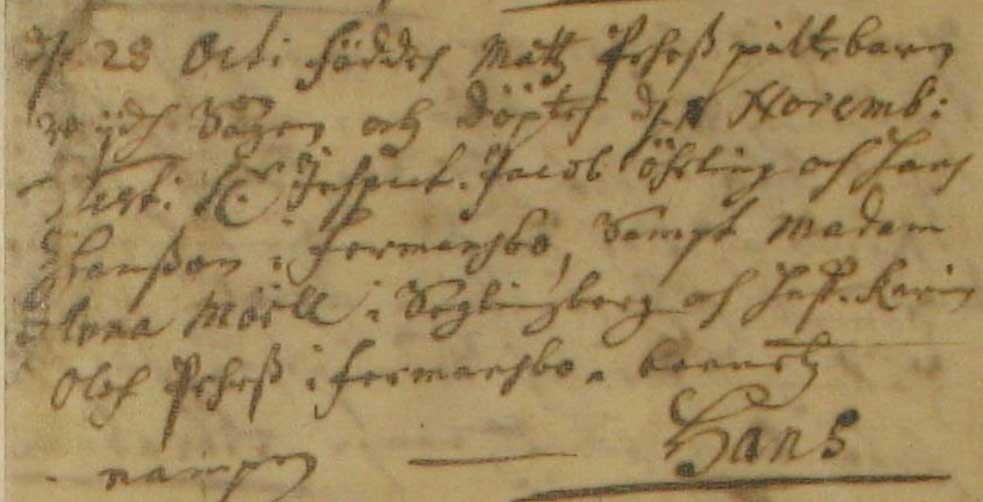 d. 28 Octi: föddes Matz Pehrß piltebarn
wijdh Sågen och döptes d. 1 Novemb:
Test: H. Inspect. Jacob Öhrling och Hans
Hanßon i Fermansbo, Sampt Madam
Elena Möell i Seglingsberg och Hust. Karin
Olof Pehrß i Fermansbo. barnetz
nampn — Hans